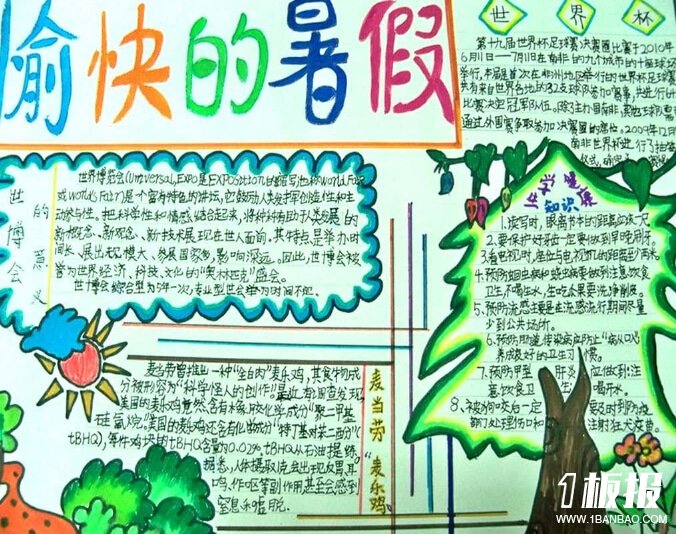 愉快的暑假
世界杯
第十九届世界杯足球赛决赛圈比赛于2010年
6月11日——7月11日在南非的九个城市的十座球场
举行,本届是首次在非洲地区举行的世界杯足球赛
共有来自世界各地的32支球队参加赛事,共进行64
比赛决定冠军队伍。除了主办国南非,其他球队需
通过外国赛争取参加决赛圈的席位。2009年12月
南非世界杯进行了抽签
仪式,确定了
世博会的意义
世界博览会(Universal,EXPO是EXPOSition的缩写也称World Fair
或World's Fair)是个富有特色的讲坛,它鼓励人类发挥创造性和主
动参与性。把科学性和情感结合起来,将种种有助于人类发展的
新概念、新观念、新技术展现在世人面前。其特点是举办时
间长、展出规模大、参展国家多,影响深远。因此,世博会被
誉为世界经济、科技、文化的“奥林匹克”盛会。
世博会综合型为5年一次,专业型世会举办时间不限。
小学生健康
知识集
1、读写时,眼离书本的距离应该一尺
2、要保护好牙齿一定要做到早晚刷牙。
3、看电视时,座位与电视机的距离
4、预防蛔虫病和蛲虫病要做到注意饮食
卫生,不喝生水,生吃瓜果要洗净削皮。
5、预防流感主要是在流感流行期间尽量
少到公共场所。
6、预防肠道传染病应防止“病从口入”
养成良好的卫生习惯。
7、预防甲型肝炎应做到:注
意饮食卫生 喝开水。
8、被狗咬后一定要及时到防疫
部门处理伤口和注射狂犬疫苗。
麦当劳麦乐鸡
麦当劳曾推出一种“全白肉”麦乐鸡,其食物成
分被形容为“科学怪人的创作”
美国的麦乐鸡竟然含有橡胶化学成分“聚二甲基
硅氧烷”美国的麦乐鸡还含有化学成分“特丁基对苯二酚”(
tBHQ),每件鸡块的tBHQ含量为0.02%,tBHQ从石油提炼,
据悉,人体摄取1克,会出现反胃、耳
鸣、作呕等副作用,甚至会感到
窒息和虚脱。
1板报
WWW.1BANBAO.COM